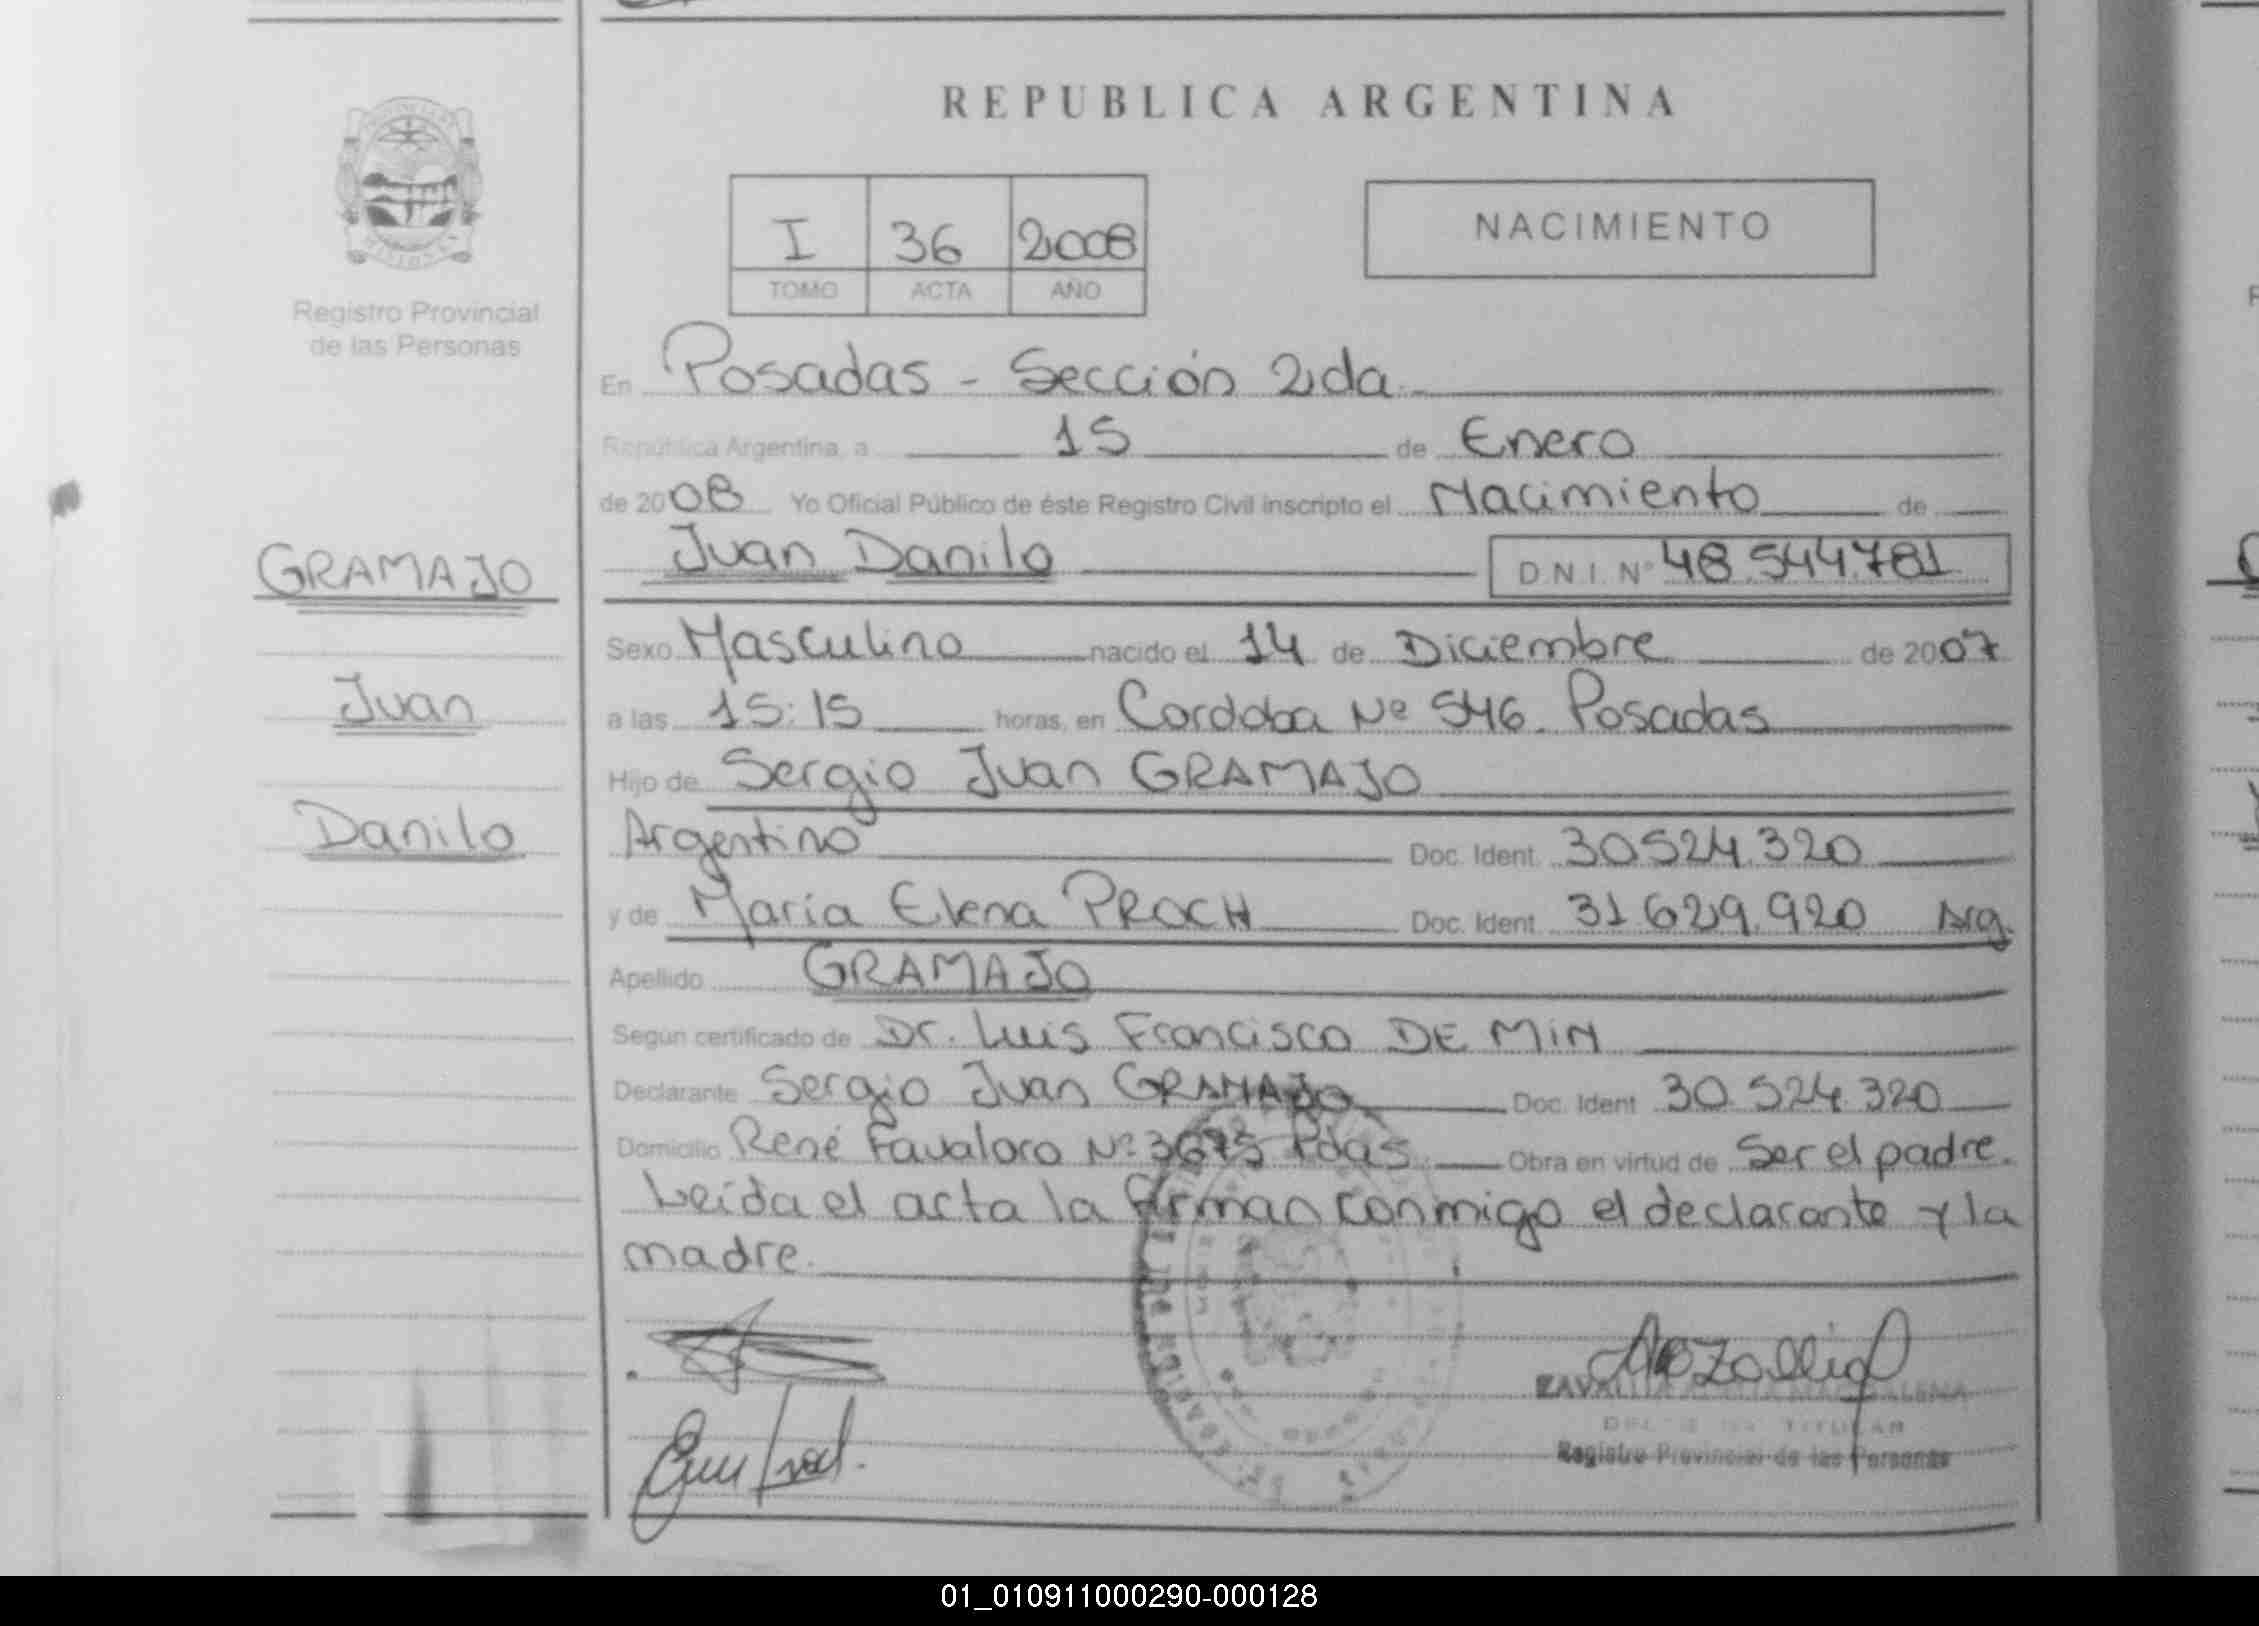 REPUBLICA ARGENTINA
I 36 2008
TOMO ACTA AÑO
NACIMIENTO
Registro Provincial
de las Personas
En Posadas - Sección 2da
República Argentina, a 15 de Enero
de 2008 Yo Oficial Público de éste Registro Civil inscripto el Nacimiento de
Juan Danilo D.N.I. Nº 48.544.781
GRAMAJO
Juan
Danilo
Sexo Masculino nacido el 14 de Diciembre de 2007
a las 15:15 horas, en Cordoba Nº 546. Posadas
Hijo de Sergio Juan GRAMAJO
Argentino Doc. Ident. 30.524.320
y de Maria Elena PROCH Doc. Ident. 31.629.920 Arg.
Apellido GRAMAJO
Según certificado de Dr. Luis Francisco DE MIN
Declarante Sergio Juan GRAMAJO Doc. Ident 30.524.320
Domicilio René Favaloro Nº 3675 Pdas. Obra en virtud de Ser el padre.
Leída el acta la firman conmigo el declarante y la
madre.
Registro Provincial de las Personas
01_010911000290-000128